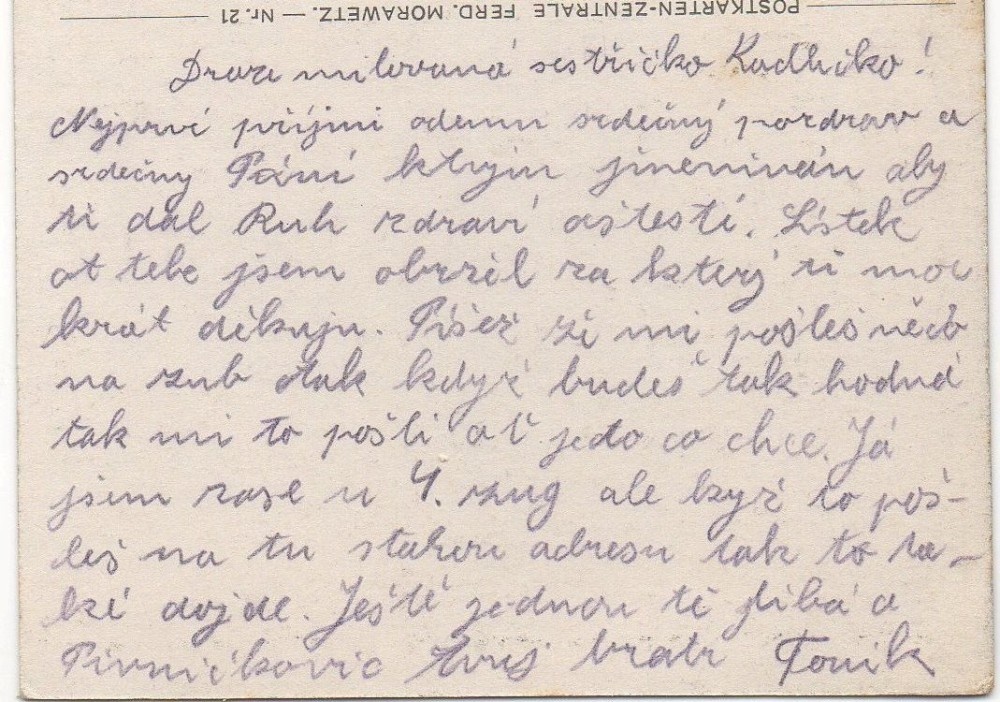 POSTKARTEN-ZENTRALE FERD. MORAWETZ. — Nr. 21
Draze milovaná sestřičko
Nejprvé přijmi odemn srdečný pozdrav a
srdečny Páni ktvjm jmeninám aby
ti dal Buh zdraví aštestí. Lístek
ot tebe jsem obrzel za kterj ti moc
krát děkuju. Píšeš že mi pošleš něco
na zub tak když budeš tak hodná
tak mi to pošli ať jedo co chce. Já
jsem zase u 4. zug ale kyž to poš-
leš na tu starou adresu tak to ta-
ké dojde. Ještě jednou tě líbá a
tvuj bratr Toník